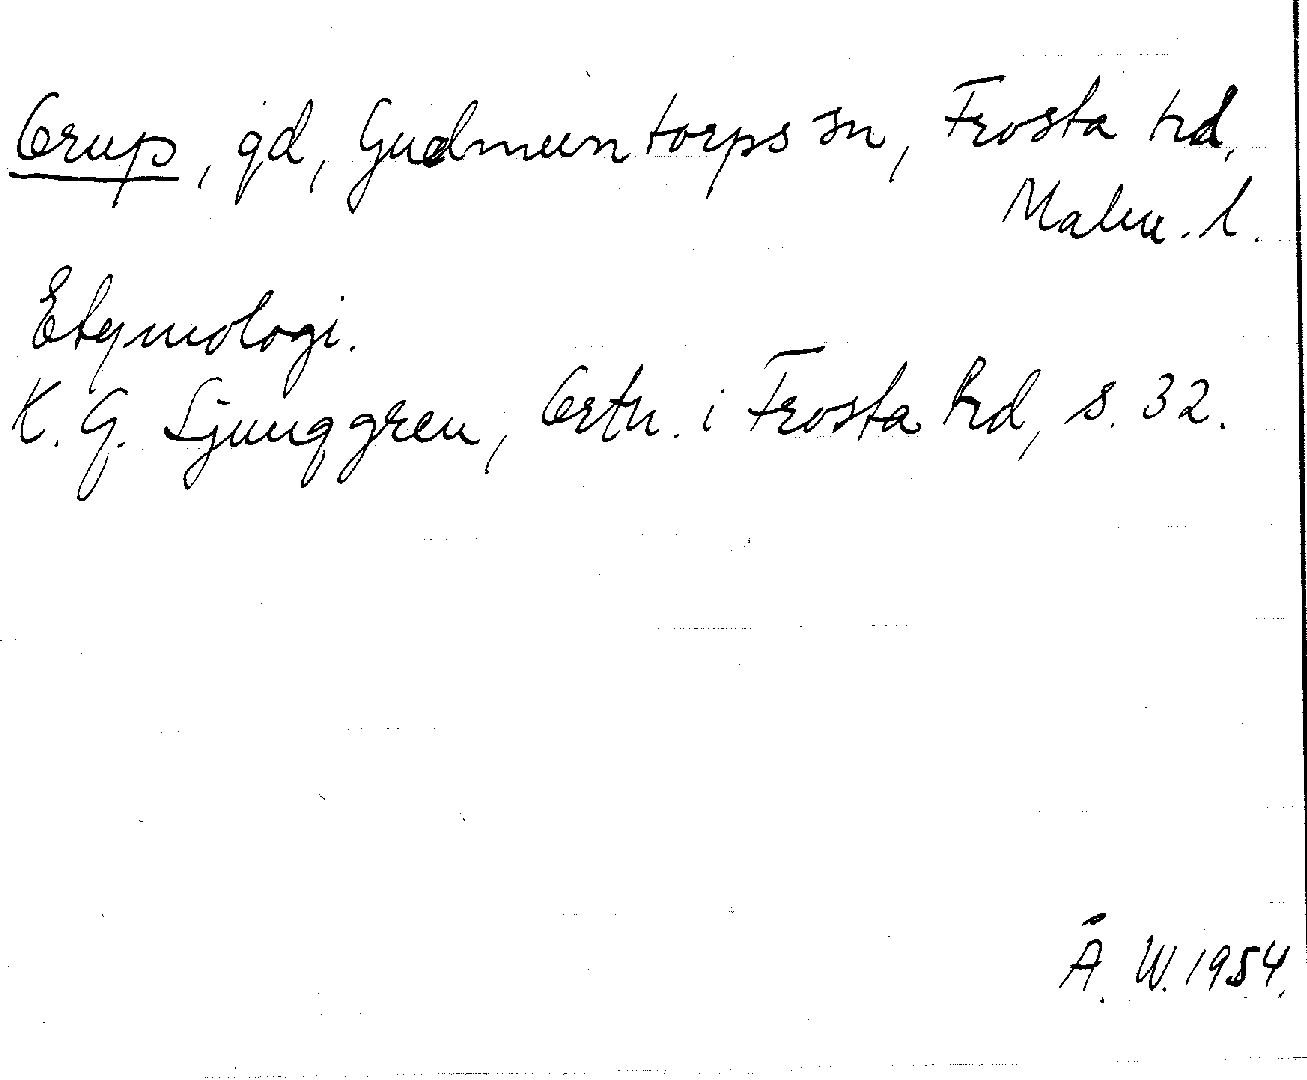 Orup, gd, Gudmuntorps sn, Frosta hd,
Malm. l.
Etymologi.
K. G. Ljunggren, Ortn. i Frosta hd, s. 32.
Å. W. 1954.